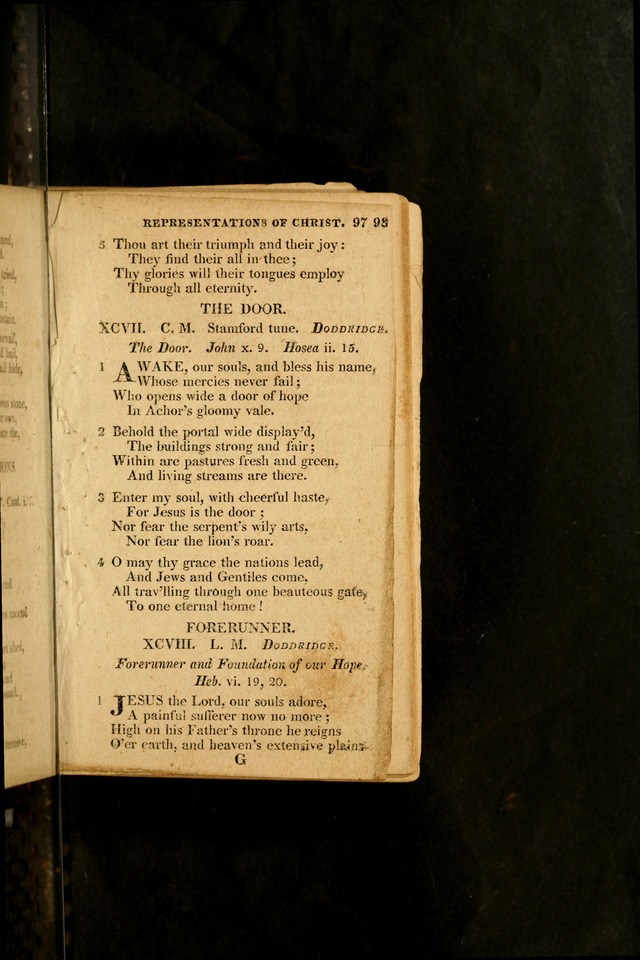 REPRESENTATIONS OF CHRIST. 97 98
5 Thou art their triumph and their joy:
They find their all in thee;
Thy glories will their tongues employ
Through all eternity.
THE DOOR.
XCVII. C. M. Stamford tune. DODDRIDGE.
The Door. John x. 9. Hosea ii. 15.
1 AWAKE, our souls, and bless his name,
Whose mercies never fail;
Who opens wide a door of hope
In Achor's gloomy vale.
2 Behold the portal wide display'd,
The buildings strong and fair;
Within are pastures fresh and green,
And living streams are there.
3 Enter my soul, with cheerful haste,
For Jesus is the door;
Nor fear the serpent's wily arts,
Nor fear the lion's roar.
4 O may thy grace the nations lead,
And Jews and Gentiles come,
All trav'lling through one beauteous gate,
To one eternal home!
FORERUNNER.
XCVIII. L. M. DODDRIDGE.
Forerunner and Foundation of our Hope.
Heb. vi. 19, 20.
1 JESUS the Lord, our souls adore,
A painful sufferer now no more;
High on his Father's throne he reigns
O'er earth, and heaven's extensive plains.
G